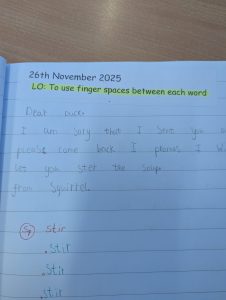 26th November 2025
LO: To use finger spaces between each word
Dear Duck
I am sory that I sent you
please came back I promis I
let you ster the soup.
from Squirrel
Sp stir
stir
stir
stir